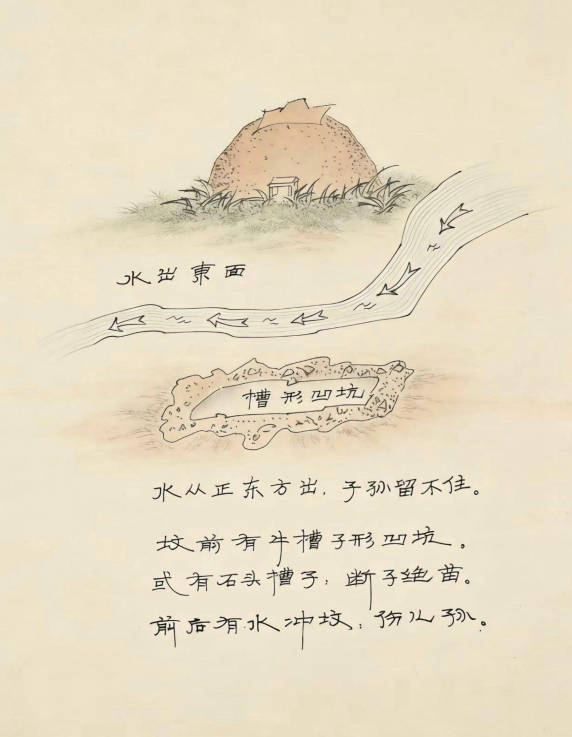 水出東面
槽形凹坑
水从正东方出，子孙留不住。
坟前有牛槽子形凹坑。
或有石头槽子；断子绝苗。
前后有水冲坟；伤儿孙。